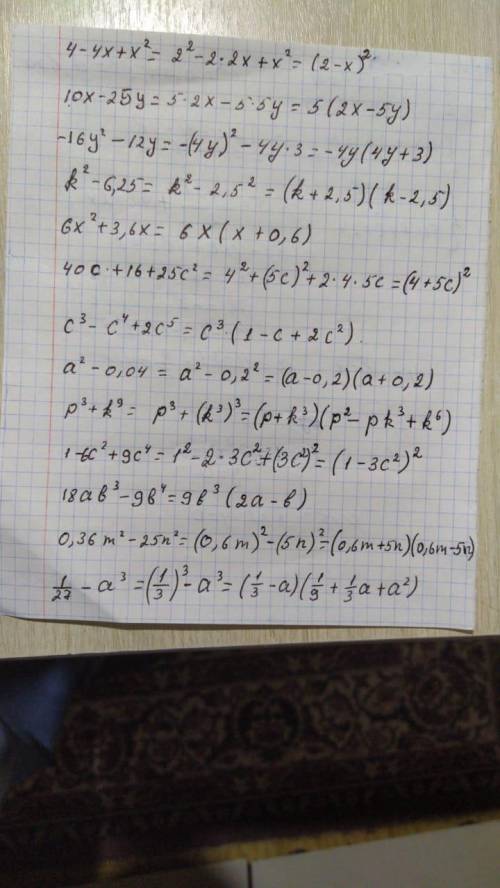 4-4x+x²= 2²-2·2x+x²=(2-x)²
10x-25y=5·2x-5·5y=5(2x-5y)
-16y²-12y=-(4y)²-4y·3=-4y(4y+3)
k²-6,25= k²-2,5²=(k+2,5)(k-2,5)
6x²+3,6x= 6x(x+0,6)
40c·+16+25c²= 4²+(5c)²+2·4·5c=(4+5c)²
c³-c⁴+2c⁵=c³·(1-c+2c²)
a²-0,04=a²-0,2²=(a-0,2)(a+0,2)
p³+k⁹= p³+(k³)³=(p+k³)(p²-pk³+k⁶)
1-6c²+9c⁴=1²-2·3c²+(3c²)²=(1-3c²)²
18ab³-9b⁴=9b³(2a-b)
0,36m²-25n²=(0,6m)²-(5n)²=(0,6m+5n)(0,6m-5n)
1/27-a³=(1/3)³-a³=(1/3-a)(1/9+1/3a+a²)